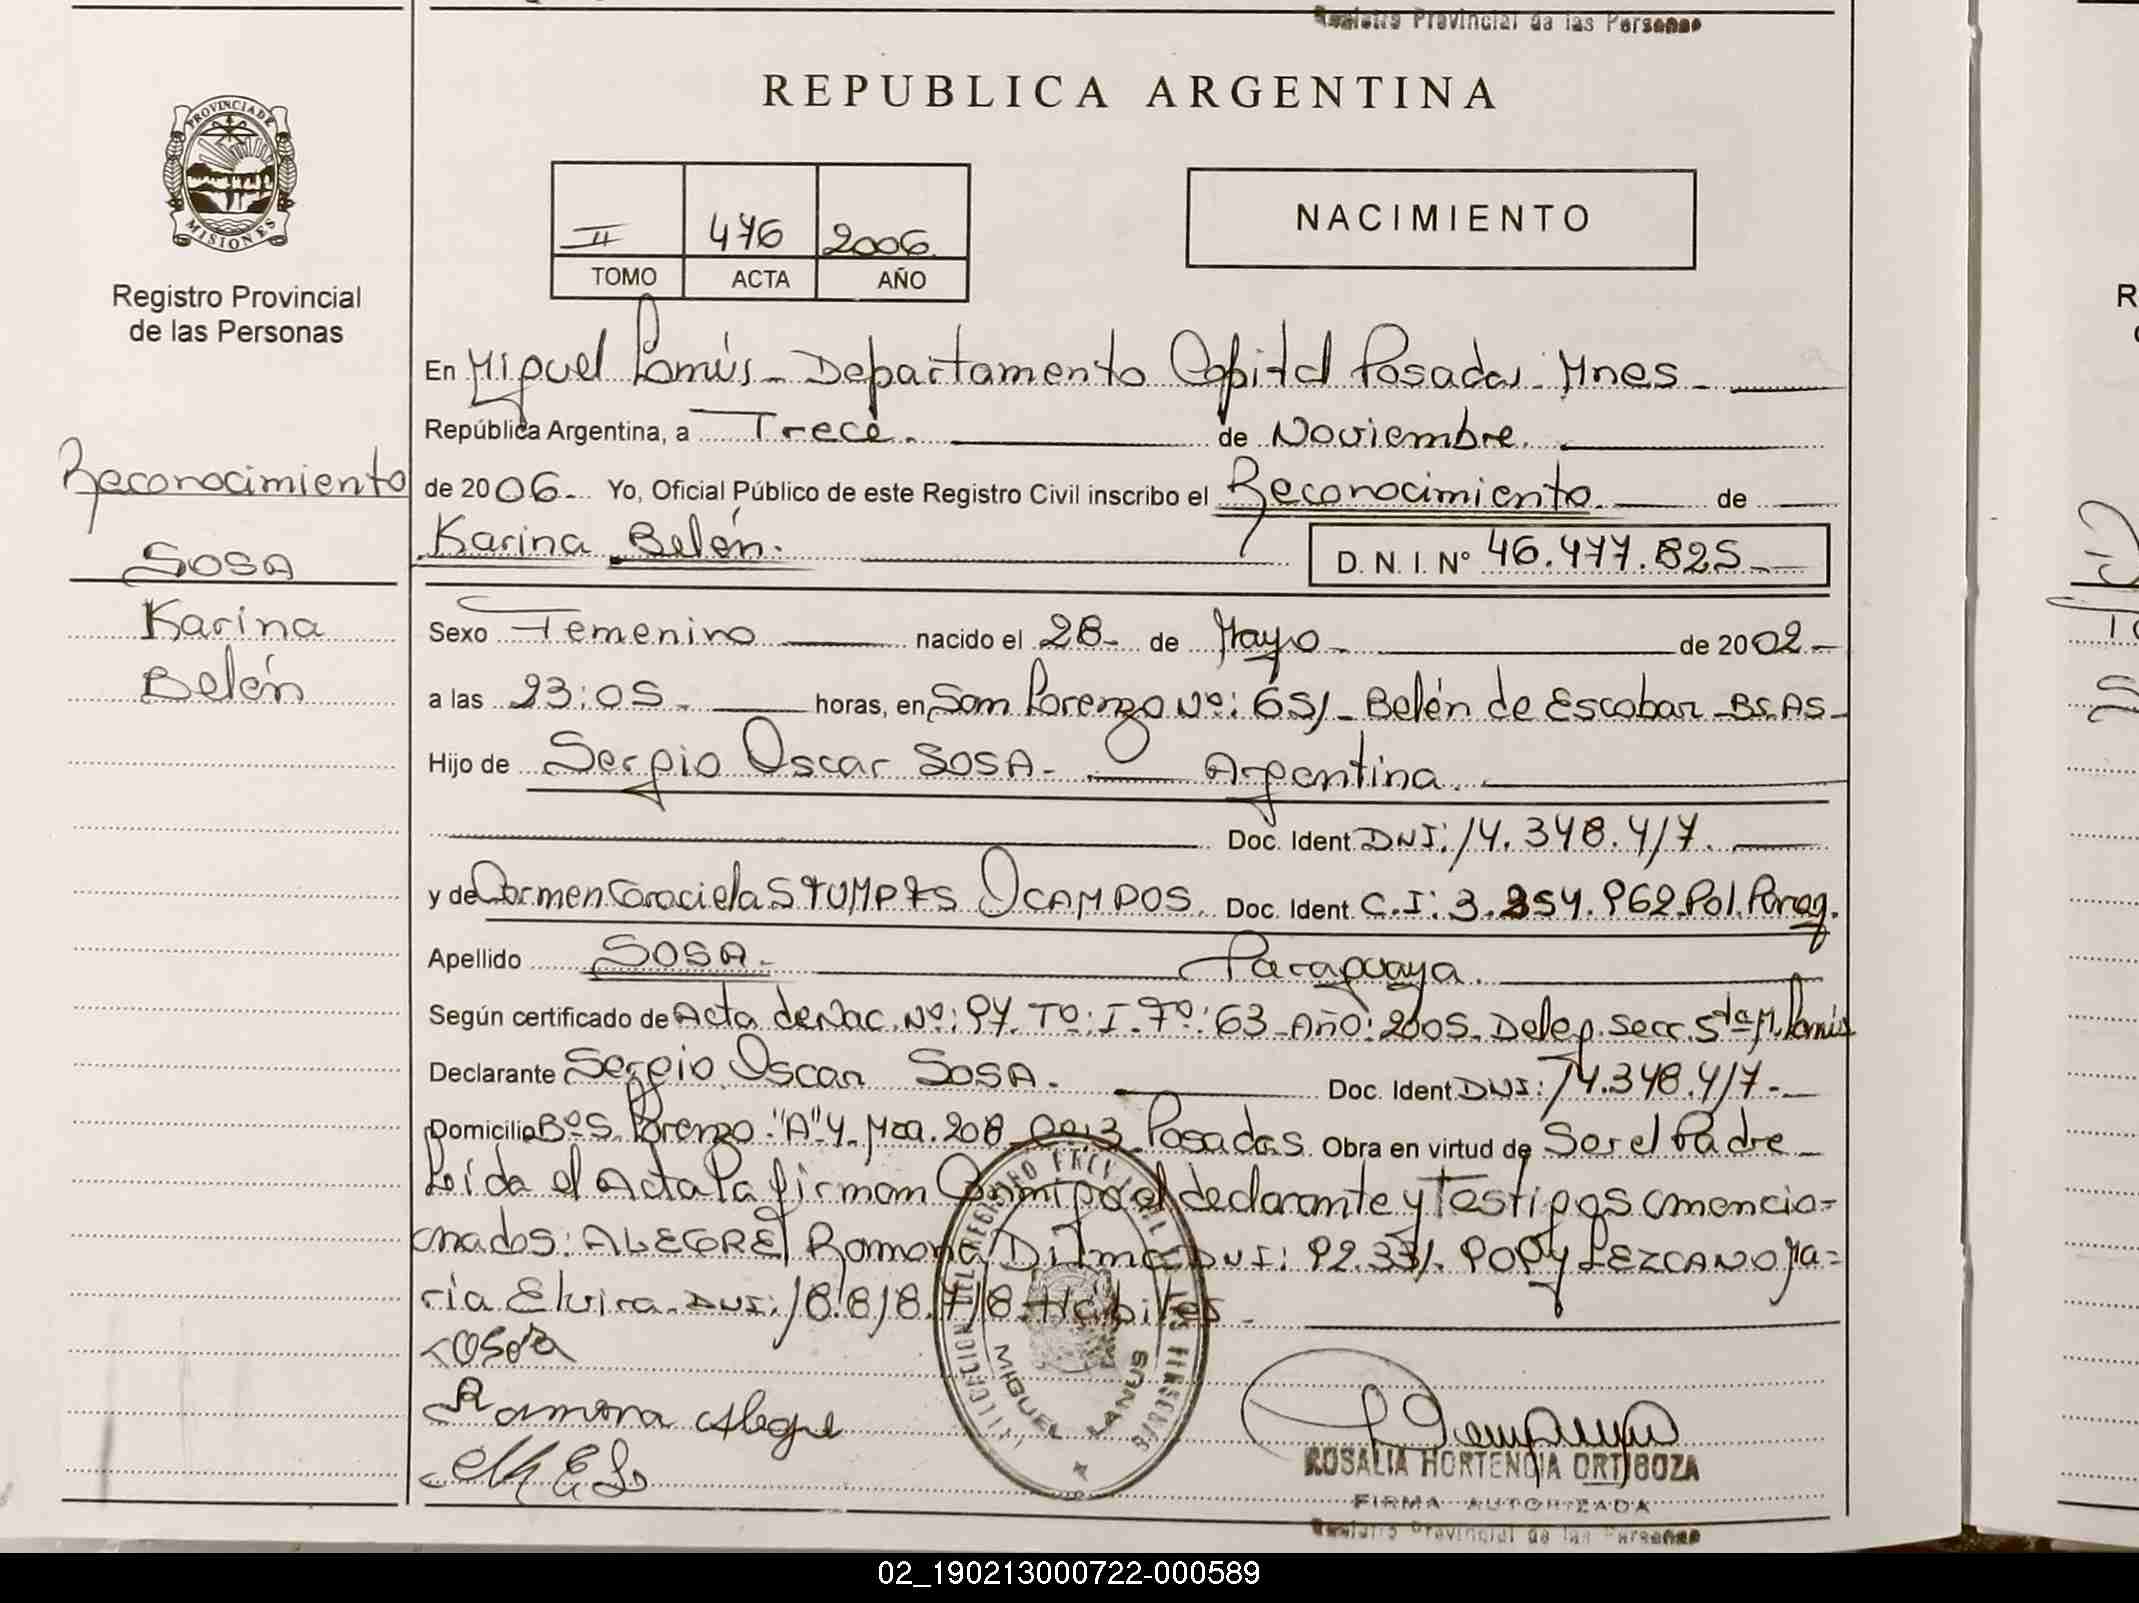 Registro Provincial de las Personas
REPUBLICA ARGENTINA
PROVINCIA DE
MISIONES
II 476 2006.
TOMO ACTA AÑO
NACIMIENTO
Registro Provincial
de las Personas
En Miguel Lanús - Departamento Capital Posadas - Mnes -
República Argentina, a Trece. de Noviembre.
Reconocimiento
de 2006.- Yo, Oficial Público de este Registro Civil inscribo el Reconocimiento de
Karina Belén. D. N. I. N° 46.477.825
SOSA
Karina
Belén
Sexo Femenino nacido el 28 de Mayo - de 2002 -
a las 23:05. horas, en San Lorenzo Nº: 651 - Belén de Escobar - Bs. AS -
Hijo de Sergio Oscar SOSA - Argentina.
Doc. Ident. DNI: 14.348.417.
y de Carmen Graciela STUMPFS OCAMPOS. Doc. Ident. C.I: 3.254.962. Pol. Parag.
Apellido SOSA - Paraguaya.
Según certificado de Acta de Nac. Nº: 94. Tº: I. Fº: 63 - Año: 2005. Deleg. Secc. 5ta M. Lanús
Declarante Sergio Oscar SOSA. Doc. Ident. DNI: 14.348.417 -
Domicilio Bº S. Lorenzo "A"4. Mza. 208 3 Posadas. Obra en virtud de Ser el Padre -
Leída el Acta la firman Conmigo el declarante y Testigos mencio=
nados: ALEGRE, Ramona Dilma DNI: 92.331.909 y LEZCANO Ma=
ría Elvira. DNI: 18.818.718. Hábiles -
Ramona Alegre
MIGUEL LANUS
ROSALIA HORTENCIA ORTIGOZA
FIRMA AUTORIZADA
Registro Provincial de las Personas
02_190213000722-000589